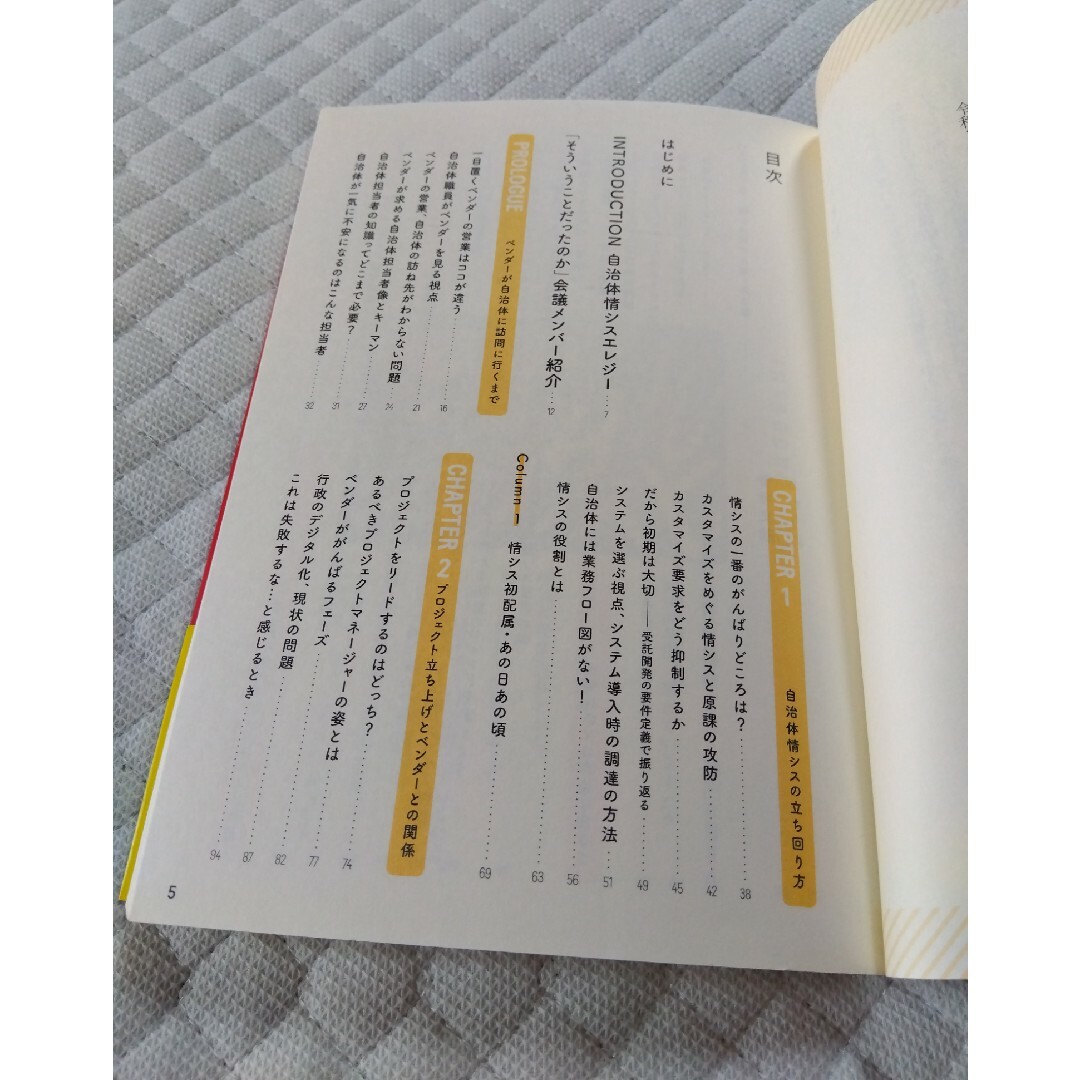 目次
はじめに
INTRODUCTION 自治体情シスエレジー …… 7
「そういうことだったのか」会議メンバー紹介 …… 12
PROLOGUE ベンダーが自治体に訪問に行くまで
一目置くベンダーの営業はココが違う …… 16
自治体職員がベンダーを見る視点 …… 21
ベンダーの営業、自治体の訪ね先がわからない問題 …… 24
ベンダーが求める自治体担当者像とキーマン …… 27
自治体担当者の知識ってどこまで必要？ …… 31
自治体が一気に不安になるのはこんな担当者 …… 32
CHAPTER 1 自治体情シスの立ち回り方
情シスの一番のがんばりどころは？ …… 38
カスタマイズをめぐる情シスと原課の攻防 …… 42
カスタマイズ要求をどう抑制するか …… 45
だから初期は大切 ―― 受託開発の要件定義で振り返る …… 49
システムを選ぶ視点、システム導入時の調達の方法 …… 51
自治体には業務フロー図がない！ …… 56
情シスの役割とは …… 63
Column 1 情シス初配属・あの日あの頃 …… 69
CHAPTER 2 プロジェクト立ち上げとベンダーとの関係
プロジェクトをリードするのはどっち？ …… 74
あるべきプロジェクトマネージャーの姿とは …… 77
ベンダーががんばるフェーズ …… 82
行政のデジタル化、現状の問題 …… 87
これは失敗するな…と感じるとき …… 94
5